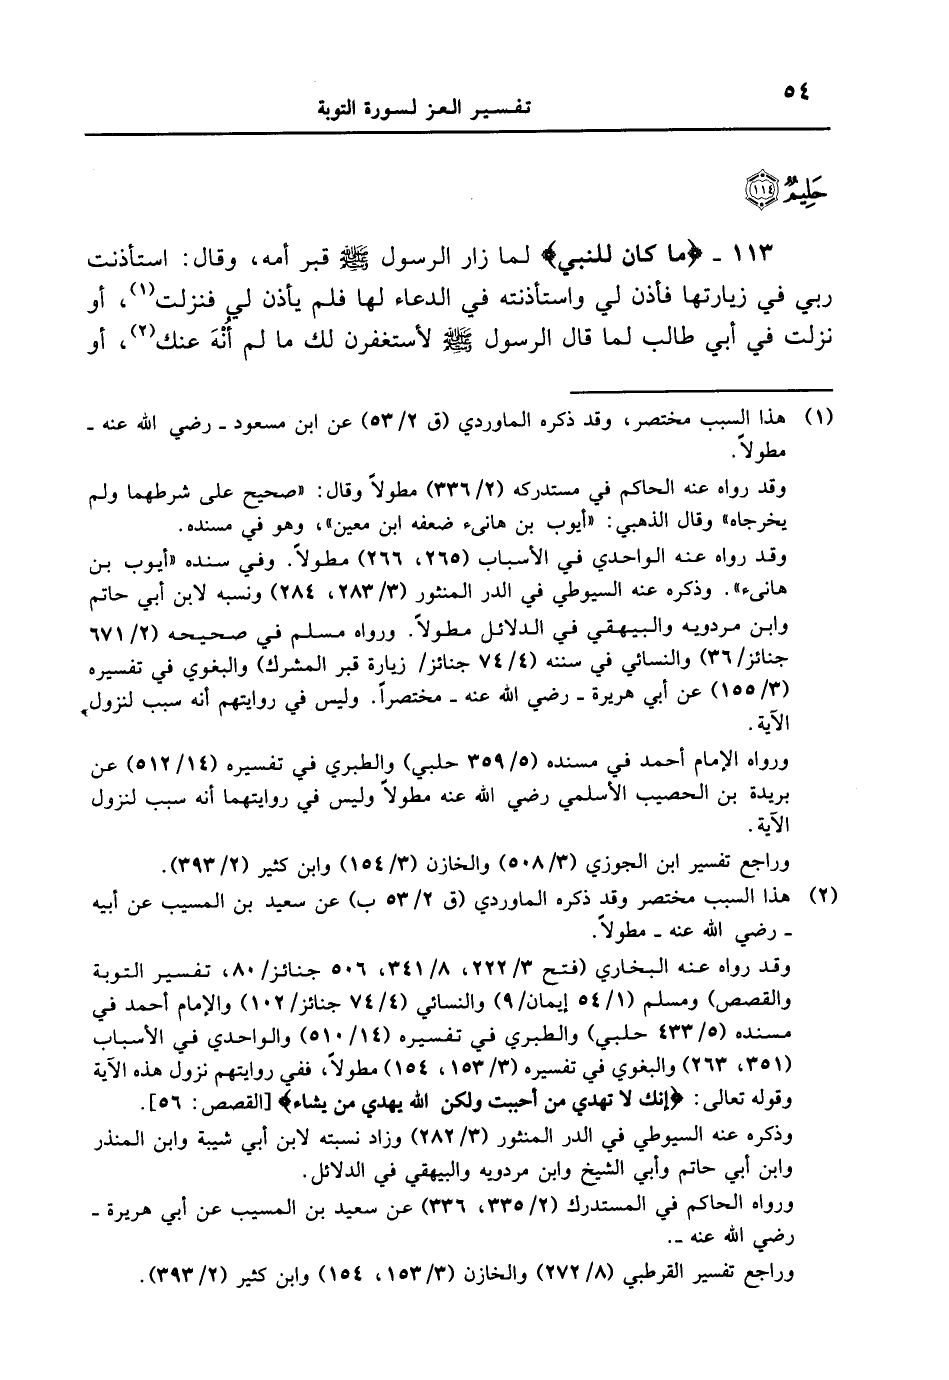 ٥٤
تفسير العز لسورة التوبة
حَلِيمٌ ﴿١١٤﴾
١١٣ ـ ﴿ما كان للنبي﴾ لما زار الرسول ﷺ قبر أمه، وقال: استأذنت
ربي في زيارتها فأذن لي واستأذنته في الدعاء لها فلم يأذن لي فنزلت(١)، أو
نزلت في أبي طالب لما قال الرسول ﷺ لأستغفرن لك ما لم أُنْهَ عنك(٢)، أو
(١) هذا السبب مختصر، وقد ذكره الماوردي (ق ٥٣/٢) عن ابن مسعود ـ رضي الله عنه ـ
مطولاً.
وقد رواه عنه الحاكم في مستدركه (٣٣٦/٢) مطولاً وقال: «صحيح على شرطهما ولم
يخرجاه» وقال الذهبي: «أيوب بن هانىء ضعفه ابن معين»، وهو في مسنده.
وقد رواه عنه الواحدي في الأسباب (٢٦٥، ٢٦٦) مطولاً. وفي سنده «أيوب بن
هانىء». وذكره عنه السيوطي في الدر المنثور (٢٨٣/٣، ٢٨٤) ونسبه لابن أبي حاتم
وابن مردويه والبيهقي في الدلائل مطولاً. ورواه مسلم في صحيحه (٦٧١/٢
جنائز/٣٦) والنسائي في سننه (٧٤/٤ جنائز/ زيارة قبر المشرك) والبغوي في تفسيره
(١٥٥/٣) عن أبي هريرة ـ رضي الله عنه ـ مختصراً. وليس في روايتهم أنه سبب لنزول
الآية.
ورواه الإمام أحمد في مسنده (٣٥٩/٥ حلبي) والطبري في تفسيره (٥١٢/١٤) عن
بريدة بن الحصيب الأسلمي رضي الله عنه مطولاً وليس في روايتهما أنه سبب لنزول
الآية.
وراجع تفسير ابن الجوزي (٥٠٨/٣) والخازن (١٥٤/٣) وابن كثير (٣٩٣/٢).
(٢) هذا السبب مختصر وقد ذكره الماوردي (ق ٥٣/٢ ب) عن سعيد بن المسيب عن أبيه
ـ رضي الله عنه ـ مطولاً.
وقد رواه عنه البخاري (فتح ٢٢٢/٣، ٣٤١/٨، ٥٠٦ جنائز/٨٠، تفسير التوبة
والقصص) ومسلم (٥٤/١ إيمان/٩) والنسائي (٧٤/٤ جنائز/١٠٢) والإمام أحمد في
مسنده (٤٣٣/٥ حلبي) والطبري في تفسيره (٥١٠/١٤) والواحدي في الأسباب
(٣٥١، ٢٦٣) والبغوي في تفسيره (١٥٣/٣، ١٥٤) مطولاً، ففي روايتهم نزول هذه الآية
وقوله تعالى: ﴿إنك لا تهدي من أحببت ولكن الله يهدي من يشاء﴾ [القصص: ٥٦].
وذكره عنه السيوطي في الدر المنثور (٢٨٢/٣) وزاد نسبته لابن أبي شيبة وابن المنذر
وابن أبي حاتم وأبي الشيخ وابن مردويه والبيهقي في الدلائل.
ورواه الحاكم في المستدرك (٣٣٥/٢، ٣٣٦) عن سعيد بن المسيب عن أبي هريرة ـ
رضي الله عنه ـ.
وراجع تفسير القرطبي (٢٧٢/٨) والخازن (١٥٣/٣، ١٥٤) وابن كثير (٣٩٣/٢).